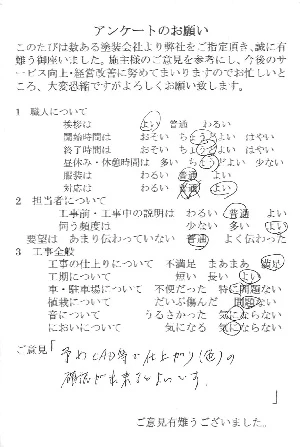 アンケートのお願い
このたびは数ある塗装会社より弊社をご指定頂き、誠に有
難う御座いました。施主様のご意見を参考にし、今後のサ
ービス向上・経営改善に努めてまいりますのでお忙しいとこ
ろ、大変恐縮ですがよろしくお願い致します。
1 職人について
挨拶は よい 普通 わるい
開始時間は おそい ちょうどよい はやい
終了時間は おそい ちょうどよい はやい
昼休み・休憩時間は 多い ちょうどよい 少ない
服装は わるい 普通 よい
対応は わるい 普通 よい
2 担当者について
工事前・工事中の説明は わるい 普通 よい
伺う頻度は 少ない 多い よい
要望は あまり伝わっていない 普通 よく伝わった
3 工事全般
工事の仕上りについて 不満足 まあまあ 満足
工期について 短い 長い よい
車・駐車場について 不便だった 特に問題ない
植栽について だいぶ傷んだ 問題ない
音について うるさかった 気にならない
においについて 気になる 気にならない
ご意見「予めCAD等で仕上がり(色)の
確認が出来てよいです。
」
ご意見有難うございました。